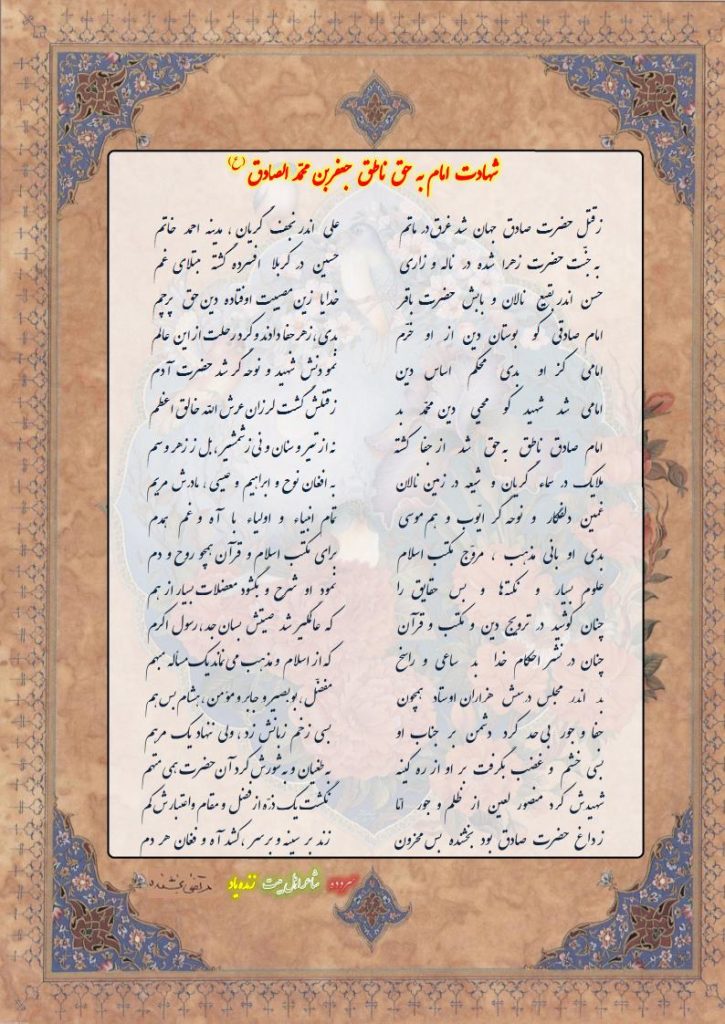 شهادت امام به حق ناطق جعفربن محمّد الصادق (ع)
ز قتل حضرت صادق جهان شد غرق در ماتم علی اندر نجف گریان ، مدینه احمد خاتم
به جنّت حضرت زهرا شده در ناله و زاری حسین در کربلا افسرده گشته مبتلای غم
حسن اندر بقیع نالان و بابش حضرت باقر خدایا زین مصیبت اوفتاده دین حق پرچم
امام صادقی کو بوستان دین از او خرّم بدی ، زهر جفا دادند و کرد رحلت از این عالم
امامی کز او بدی محکم اساس دین نمودنش شهید و نوحه گر شد حضرت آدم
امامی شد شهید کو محیی دین محمّد بد ز قتلش گشت لرزان عرش الله خالق اعظم
امام صادق ناطق به حق شد از جفا کشته نه از تیر و سنان و نی ز شمشیر ، بل ز زهر و سم
ملایک در سماء گریان و شیعه در زمین نالان به افغان نوح و ابراهیم و عیسی ، مادرش مریم
غمین دلفکار و نوحه گر ایّوب و هم موسی تمام انبیاء و اولیاء با آه و غم همدم
بدی او بانی مذهب ، مروّج مکتب اسلام برای مکتب اسلام و قرآن همچو روح و دم
علوم بسیار و نکته‌ها و بس حقایق را نمود او شرح و بگشود معضلات بسیار از هم
چنان کوشید در ترویج دین و مکتب و قرآن که عالمگیر شد صیتش بسان جد ، رسول اکرم
چنان در نشر احکام خدا بد ساعی و راسخ که از اسلام و مذهب می نماند یک مسأله مبهم
بد اندر مجلس درسش هزاران اوستاد همچون مفضّل ، بوبصیر و جابر و مؤمن ، هشام بس هم
جفا و جور بی حد کرد دشمن بر جناب او بسی زخم زبانش زد ، ولی ننهاد یک مرهم
بسی خشم و غضب بگرفت بر او از ره کینه به طغیان و به شورش کرد آن حضرت همی متهم
شهیدش کرد منصور لعین از ظلم و جور امّا نگشت یک ذرّه از فضل و مقام و اعتبارش کم
ز داغ حضرت صادق بود بخشنده بس محزون زند بر سینه و بر سر ، کشد آه و فغان هر دم
سروده شاعر اهل بیت زنده یاد بخشنده